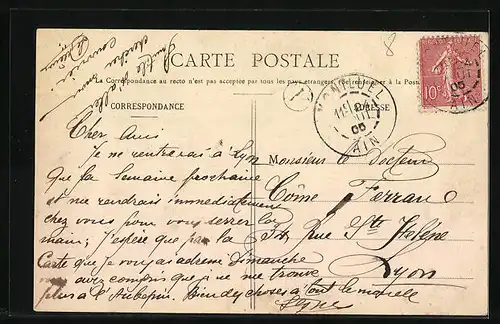 CARTE POSTALE
La Correspondance au recto n'est pas acceptée par tous les pays étrangers, se renseigner à la Poste
CORRESPONDANCE
ADRESSE
MONTLUEL
AIN
05
10c
8
Cher Ami
Je ne rentrerai à Lyon
que la Semaine prochaine
et me rendrais immédiatement
chez vous pour vous serrer la
main; J'espère que par la
Carte que je vous ai adressé dimanche
vous avez compris que je ne me trouve
plus à l'Aubépin. Bien des choses à tout le monde
Monsieur le Docteur
Côme Ferran
34 Rue Ste Hélène
Lyon